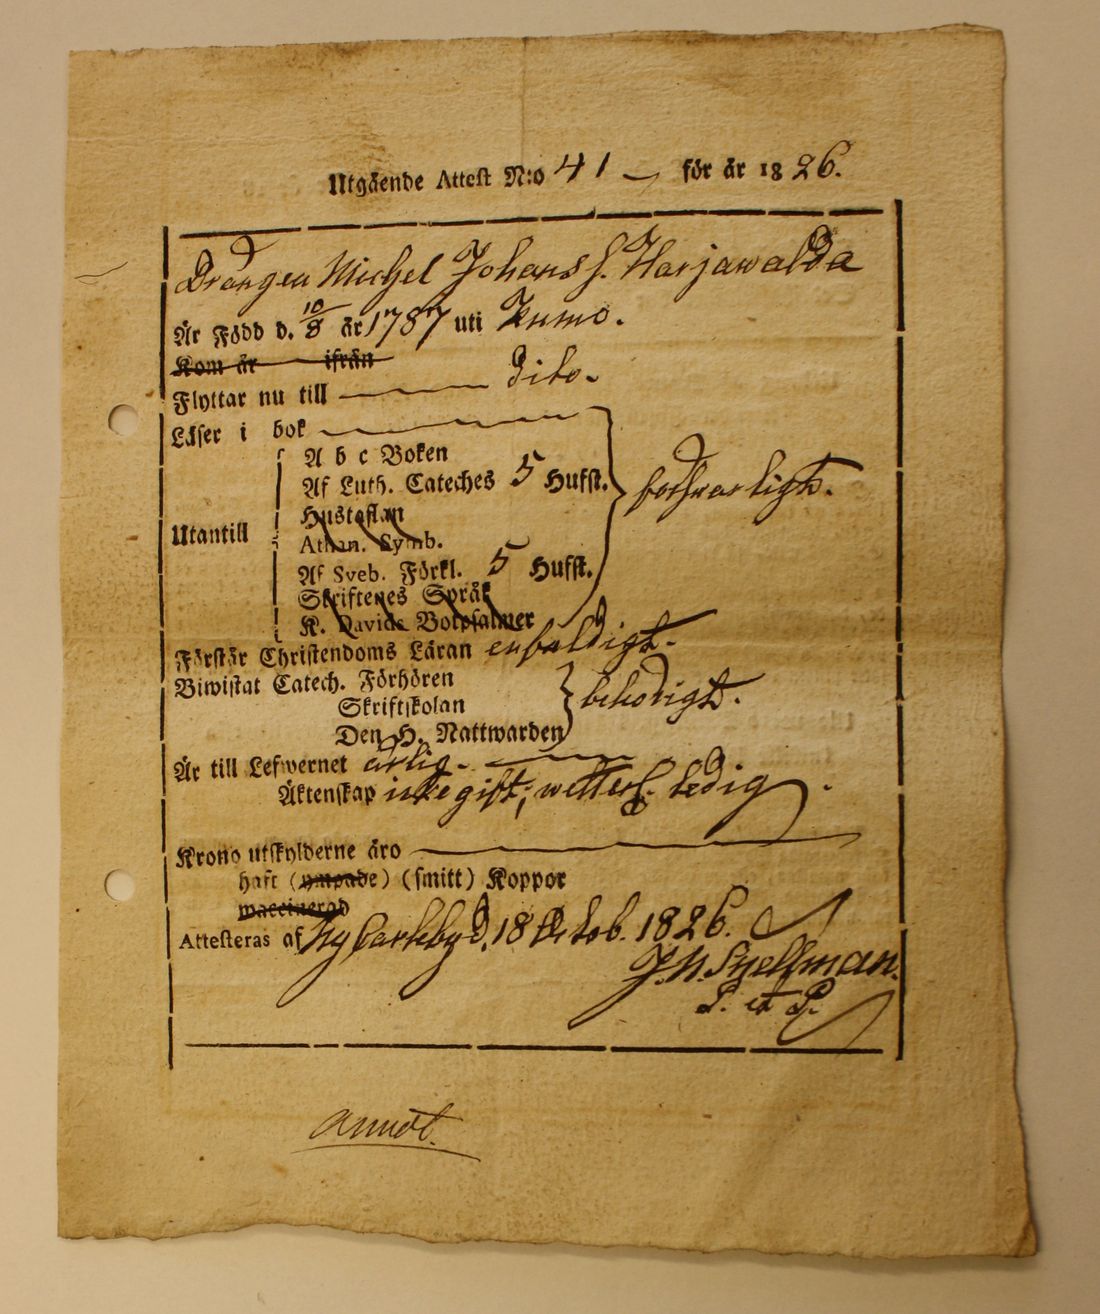 Utgående Attest N:o 41 för år 1826.
Drängen Michel Johans s. Harjawalda
Är Född d. 10/8 år 1787 uti Kumo.
Kom år ifrån
Flyttar nu till dito.
Läser i bok
A b c Boken
Af Luth. Cateches 5 Hufst. försvarligt.
Hustaflan
Utantill
Athan. Symb.
Af Sveb. Förkl. 5 Hufst.
Skriftenes Språk
K. Davids Botpsalmer
Förstår Christendoms Läran enfaldigt.
Biwistat Catech. Förhören
Skriftskolan behörigt.
Den H. Nattwarden
Är till Lefwernet ärlig.
Äktenskap icke gift, ledig.
Krono utskylderne äro
haft (ympade) (smitt) Koppor
waccinerad
Attesteras af Ny Carleby d. 18 Octob. 1826.
J. N. Snellman.
P. et P.
anmält.